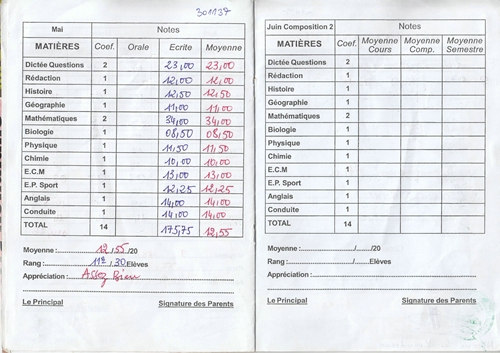 301137
Mai Notes
MATIÈRES Coef. Orale Ecrite Moyenne
Dictée Questions 2 23,00 23,00
Rédaction 1 12,00 12,00
Histoire 1 12,50 12,50
Géographie 1 11,00 11,00
Mathématiques 2 34,00 34,00
Biologie 1 08,50 08,50
Physique 1 11,50 11,50
Chimie 1 10,00 10,00
E.C.M 1 13,00 13,00
E.P. Sport 1 12,25 12,25
Anglais 1 14,00 14,00
Conduite 1 14,00 14,00
TOTAL 14 175,75 12,55
Moyenne :12,55/20
Rang :11e/30 Elèves
Appréciation :Assez Bien
Le Principal Signature des Parents
Juin Composition 2 Notes
MATIÈRES Coef. Moyenne Cours Moyenne Comp. Moyenne Semestre
Dictée Questions 2
Rédaction 1
Histoire 1
Géographie 1
Mathématiques 2
Biologie 1
Physique 1
Chimie 1
E.C.M 1
E.P. Sport 1
Anglais 1
Conduite 1
TOTAL 14
Moyenne :......................./......./20
Rang :......................./.......Elèves
Appréciation :.......................
Le Principal Signature des Parents